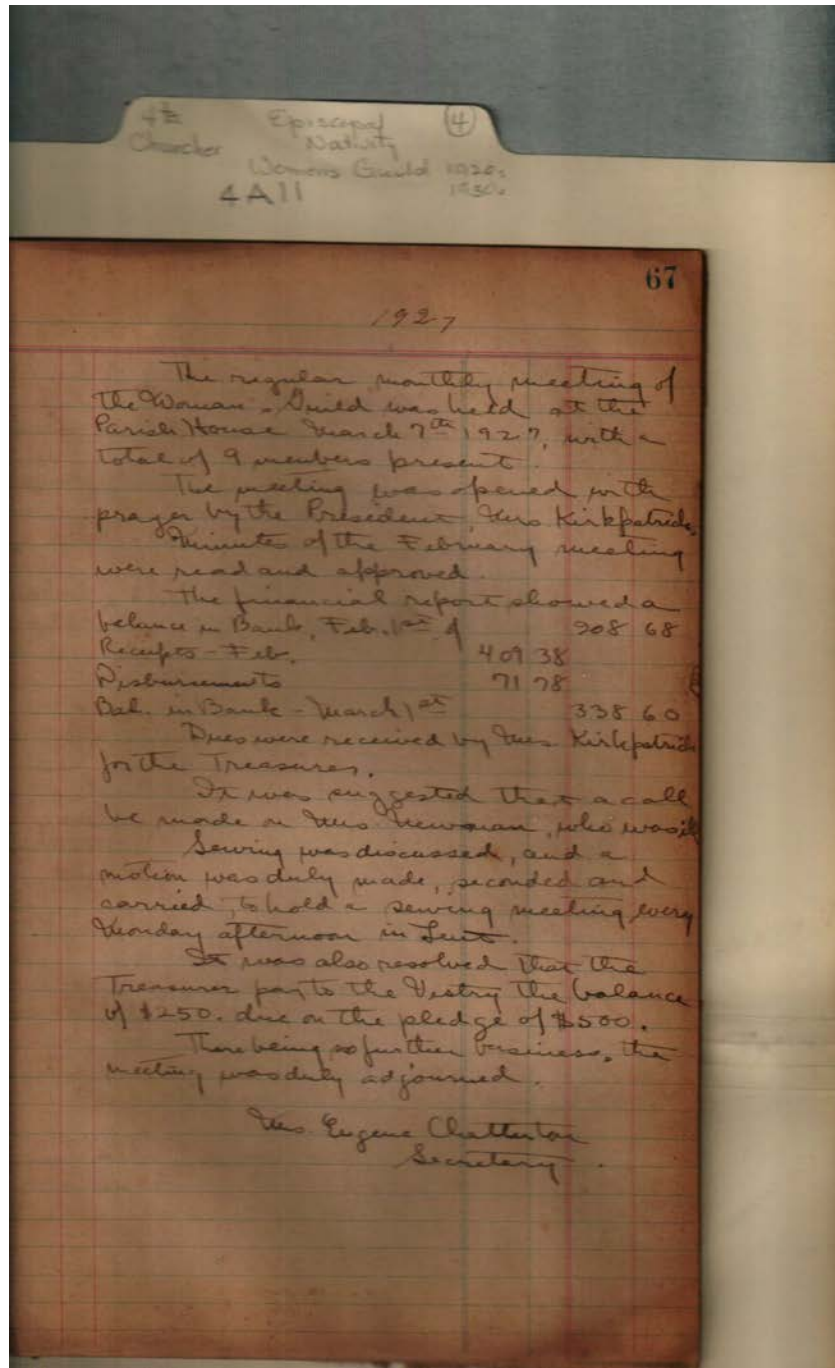 4th Episcopal (4)
Churches Nativity
Womens Guild 1920s
4A11 1930s
67
1927
The regular monthly meeting of
the Woman's Guild was held at the
Parish House March 7th 1927, with a
total of 9 members present.
The meeting was opened with
prayer by the President, Mrs Kirkpatrick.
Minutes of the February meeting
were read and approved.
The financial report showed a
balance in Bank, Feb. 1st of 908 68
Receipts - Feb. 409 38
Disbursements 71 78
Bal. in Bank - March 1st 338 60
Dues were received by Mrs. Kirkpatrick
for the Treasurer.
It was suggested that a call
be made on Mrs Newman, who was ill
Sewing was discussed, and a
motion was duly made, seconded and
carried, to hold a sewing meeting every
Monday afternoon in Lent.
It was also resolved that the
Treasurer pay to the Vestry the balance
of $250. due on the pledge of $500.
There being no further business, the
meeting was duly adjourned.
Mrs. Eugene Chatterton
Secretary.